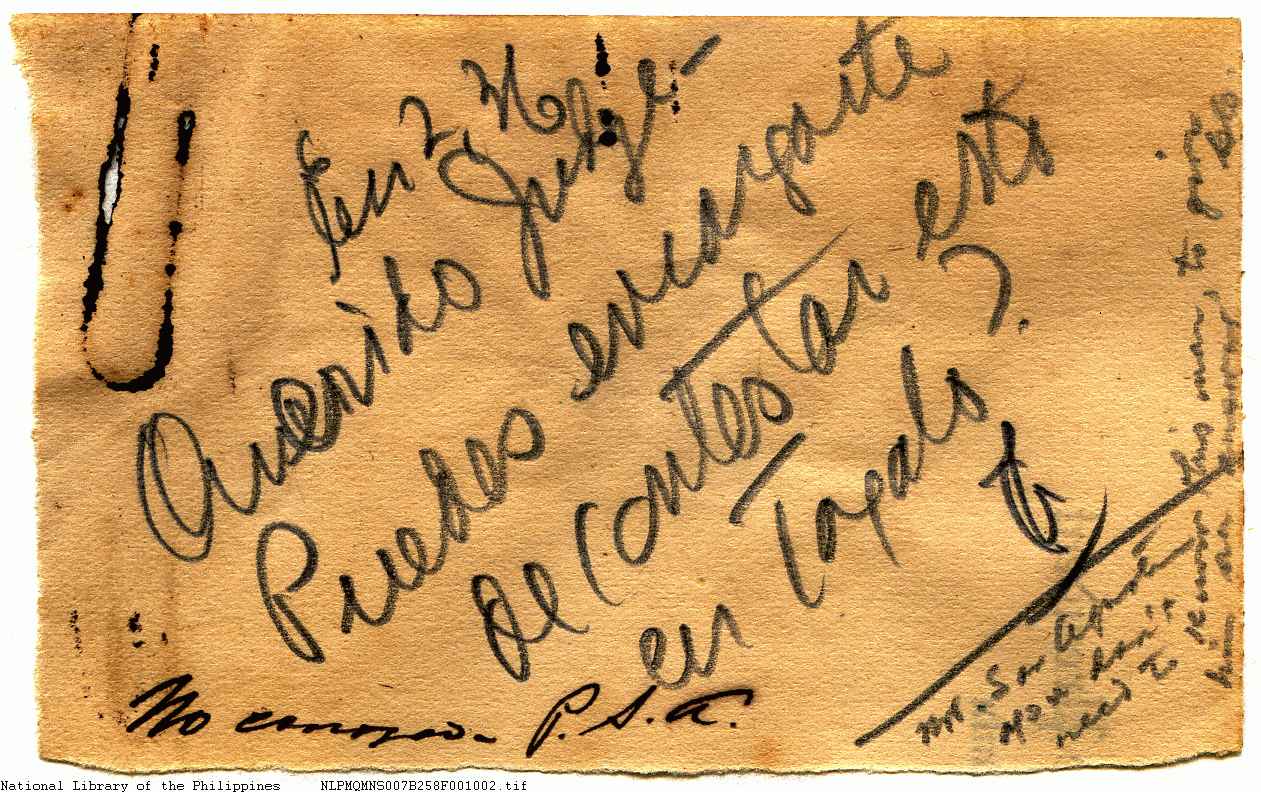 En 2, 36
Querido Judge -
Puedes encargarte
de contestar esto
en Tagalo?
No conozco - P. S. A.
Mr. San Agustin
You don't
need to
know this man to give
him an answer
National Library of the Philippines NLPMQMNS007B258F001002.tif